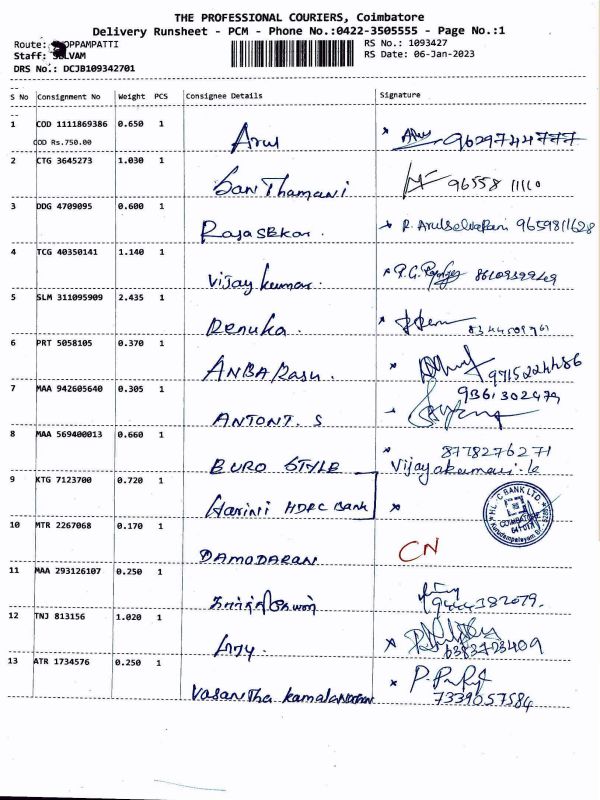 THE PROFESSIONAL COURIERS, Coimbatore
Delivery Runsheet - PCM - Phone No.:0422-3505555 - Page No.:1
Route: OPPAMPATTI
RS No.: 1093427
Staff: SELVAM
RS Date: 06-Jan-2023
DRS No.: DCJB109342701
S No Consignment No Weight PCS Consignee Details Signature
1 COD 1111869386 0.650 1 Arul 9629744777
COD Rs.750.00
2 CTG 3645273 1.030 1 Santhamani 96558 11110
3 DDG 4709095 0.600 1 Rajasekar. R. Arulselvarani 9659811628
4 TCG 40350141 1.140 1 Vijay kumar.
5 SLM 311095909 2.435 1 Renuka.
6 PRT 5058105 0.370 1 ANBARasu. 9715224486
7 MAA 942605640 0.305 1 ANTONY. S 9361302479
8 MAA 569400013 0.660 1 BURO STYLE 8778276271
Vijayakumari.k
9 KTG 7123700 0.720 1 Harini HDFC Bank
10 MTR 2267068 0.170 1 DAMODARAN CN
11 MAA 293126107 0.250 1 9444182079.
12 TNJ 813156 1.020 1 6383723409
13 ATR 1734576 0.250 1 Vasantha kamalanathan 7339057584